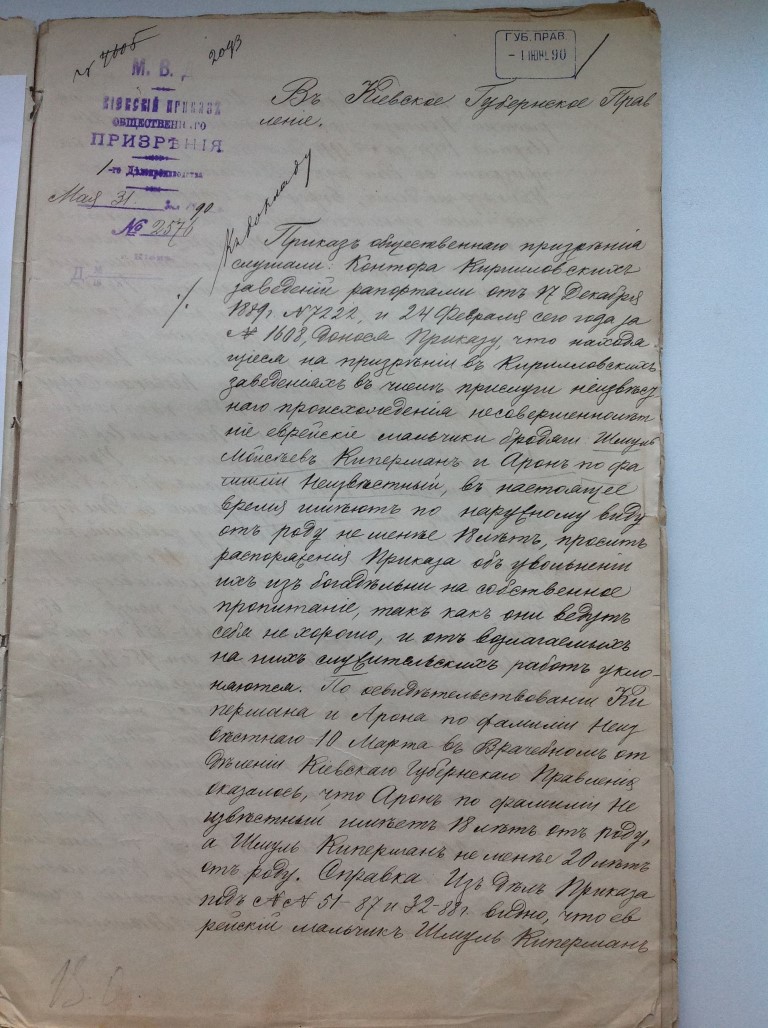 2093
ГУБ. ПРАВ.
90
М. В. Д.
КІЕВСКІЙ ПРИКАЗЪ
ОБЩЕСТВЕННАГО
ПРИЗРѢНІЯ
1-го Дѣлопроизводства
Мая 31 дня 1890
№ 2576
Къ докладу
Въ Кіевское Губернское Прав
леніе.
Приказъ общественнаго призрѣнія
слушали: Контора Кирилловскихъ
заведеній рапортами отъ 17 Декабря
1889 г. N 7222, и 24 Февраля сего года за
№ 1608, донося Приказу, что находя
щіеся на призрѣніи въ Кирилловскихъ
заведеніяхъ въ числѣ прислуги неизвѣст
наго происхожденія несовершеннолѣт
ніе еврейскіе мальчики бродяги Шмуль
Мойсѣевъ Киперманъ и Аронъ по фа
миліи Неизвѣстный, въ настоящее
время имѣютъ по наружному виду
отъ роду не менѣе 18 лѣтъ, проситъ
распоряженія Приказа объ увольненіи
ихъ изъ богадѣльни на собственное
пропитаніе, такъ какъ они ведутъ
себя не хорошо, и отъ возлагаемыхъ
на нихъ служительскихъ работъ укло-
няются. По освидѣтельствованіи Ки
пермана и Арона по фамиліи Неиз
вѣстнаго 10 Марта въ Врачебномъ от
дѣленіи Кіевскаго Губернскаго Правленія
оказалось, что Аронъ по фамиліи Не
извѣстный имѣетъ 18 лѣтъ отъ роду,
а Шмуль Киперманъ не менѣе 20 лѣтъ
отъ роду. Справка Изъ дѣлъ Приказа
подъ № № 51-87 и 32-88 г. видно, что ев
рейскій мальчикъ Шмуль Киперманъ